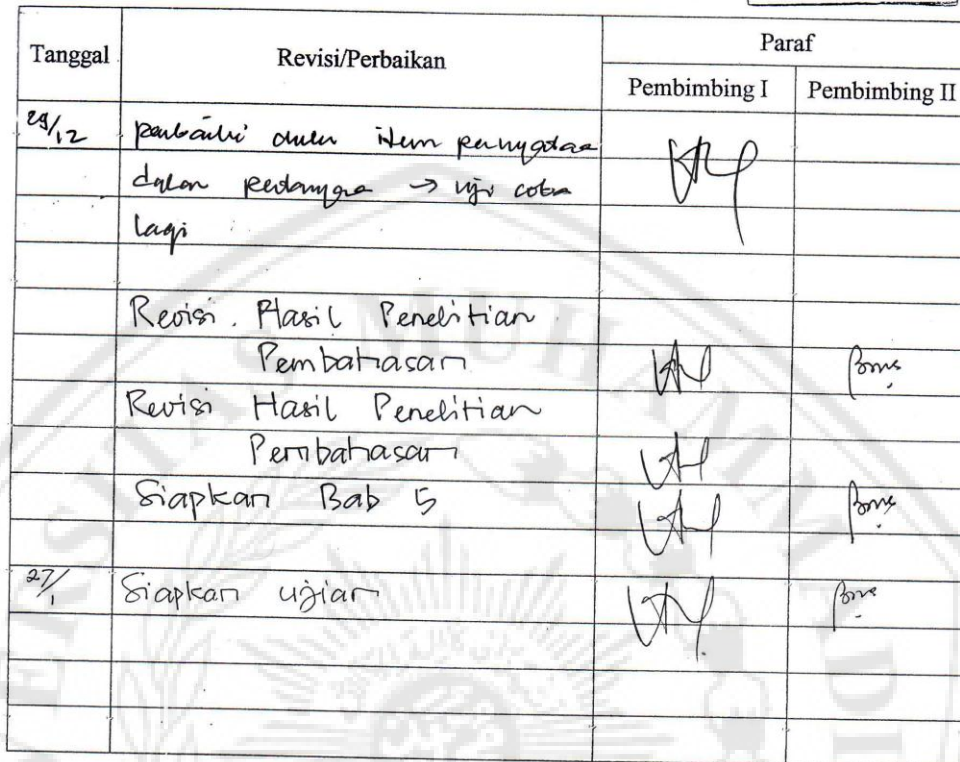 Tanggal Revisi/Perbaikan Paraf
Pembimbing I Pembimbing II
29/12 perbaiki dulu item pernyataan
dalam → uji coba
lagi
Revisi Hasil Penelitian
Pembahasan
Revisi Hasil Penelitian
Pembahasan
Siapkan Bab 5
27/1 Siapkan ujian
ERSITAS MUHAMMADI